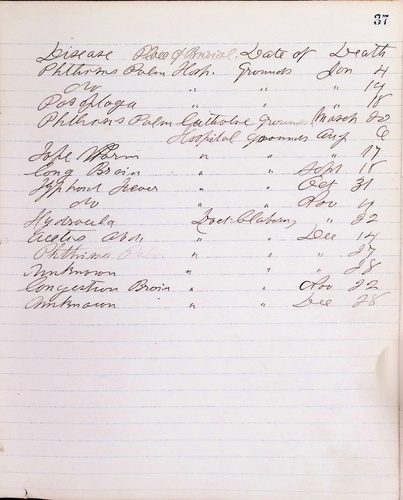 37
Disease Place of Burial. Date of Death
Phthisis Palm Hosp. Grounds Jan 4
do " " " 19
" " " 18
Phthisis Palm Catholic Grounds March 20
Hospital Grounds Aug 6
Tape Worm " " " 17
Cong Brain " " Sept 18
Typhoid Fever " " Oct 31
do " " Nov 4
" 22
" " Dec 14
Phthisis Palm " " " 27
Unknown " " " 28
Congestion Brain " " Nov 22
Unknown " " Dec 28